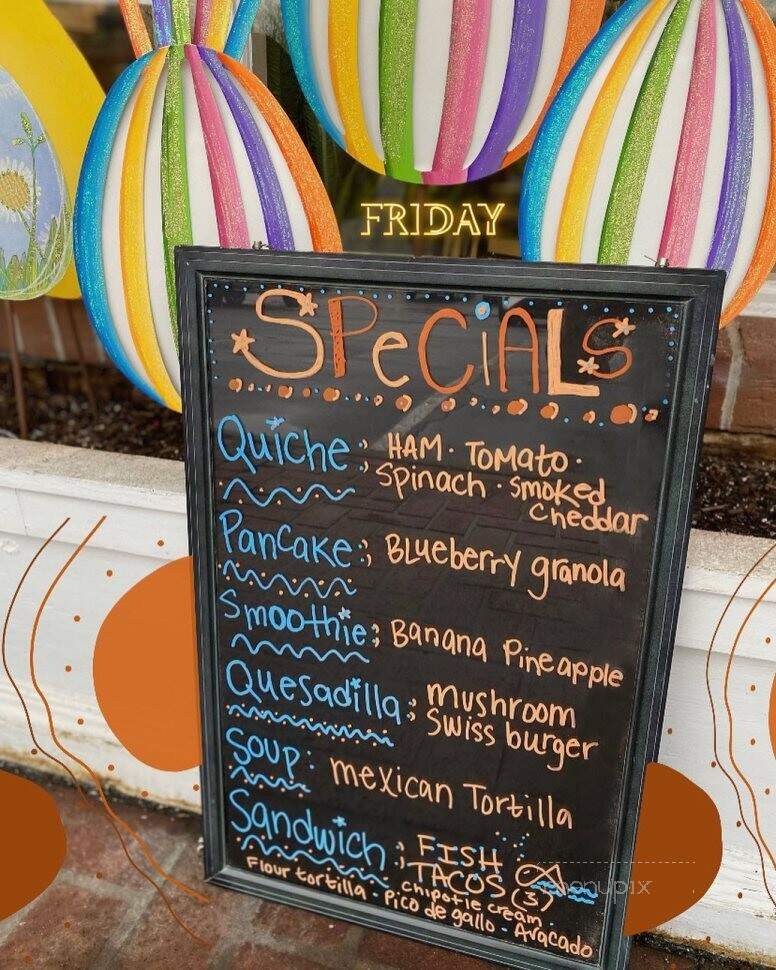 FRIDAY
SPeCiALS
Quiche: HAM · Tomato ·
Spinach · Smoked
Cheddar
Pancake: Blueberry granola
Smoothie: Banana Pineapple
Quesadilla: mushroom
Swiss burger
Soup: mexican Tortilla
Sandwich: FISH
TACOS (3)
Flour tortilla · chipotle cream
Pico de gallo · Avacado
menupix